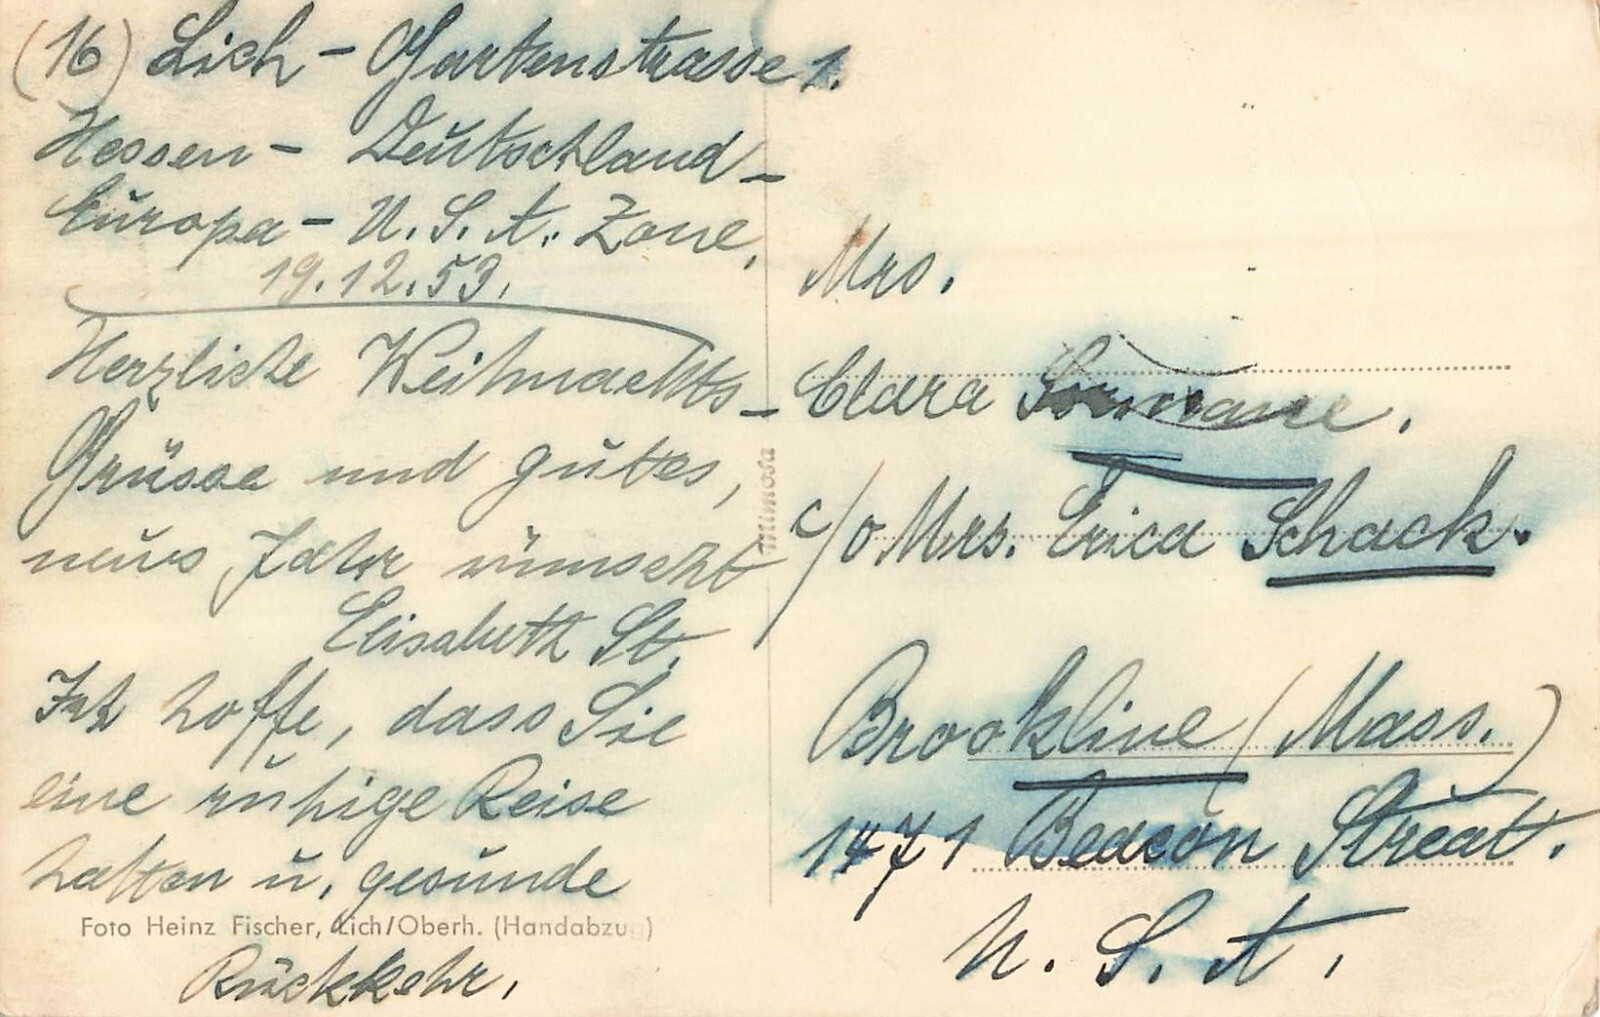 (16) Lich - Gartenstrasse 1.
Hessen - Deutschland -
Europa - U.S.A. Zone,
19.12.53.
Herzliche Weihnachts-
Grüsse und gutes,
neues Jahr wünscht
Elisabeth St.
Ich hoffe, dass Sie
eine ruhige Reise
hatten u. gesunde
Rückkehr.
Foto Heinz Fischer, Lich/Oberh. (Handabzug)
Mimosa
Mrs.
Clara
c/o Mrs. Erica Schack.
Brookline (Mass.)
1471 Beacon Streat.
U.S.A.